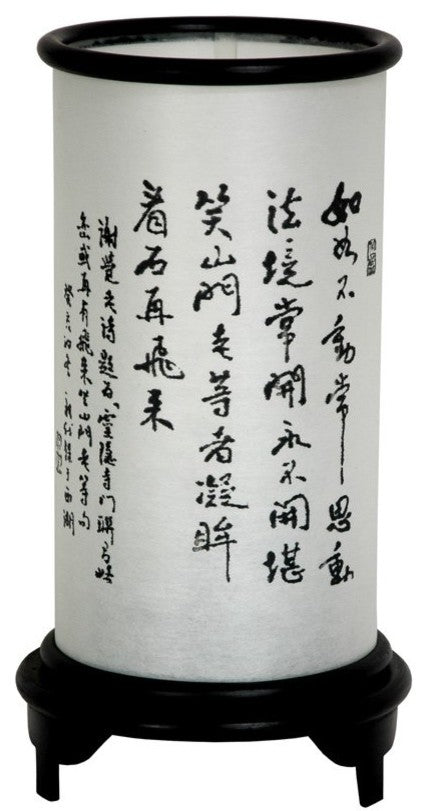 如如不動常思動
法境常開永不開堪
笑山門老等者凝眸
看石再飛来
謝覺老詩題為靈隱寺門聯
或再有飛来笑山門老等句
西湖